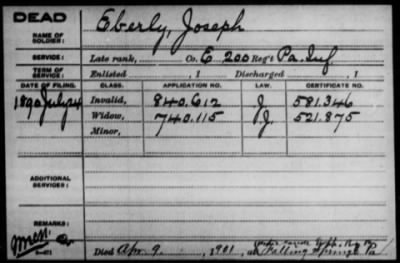 DEAD
NAME OF SOLDIER: Eberly, Joseph
SERVICE: Late rank, Co. E 200 Reg't Pa. Inf
TERM OF SERVICE: Enlisted , 1 Discharged , 1
DATE OF FILING. CLASS. APPLICATION NO. LAW. CERTIFICATE NO.
1890 July 24 Invalid, 840.612 J. 581.346
Widow, 740.115 J. 521.875
Minor,
ADDITIONAL SERVICES:
REMARKS:
Died Apr. 9 1901, at Falling Springs Pa